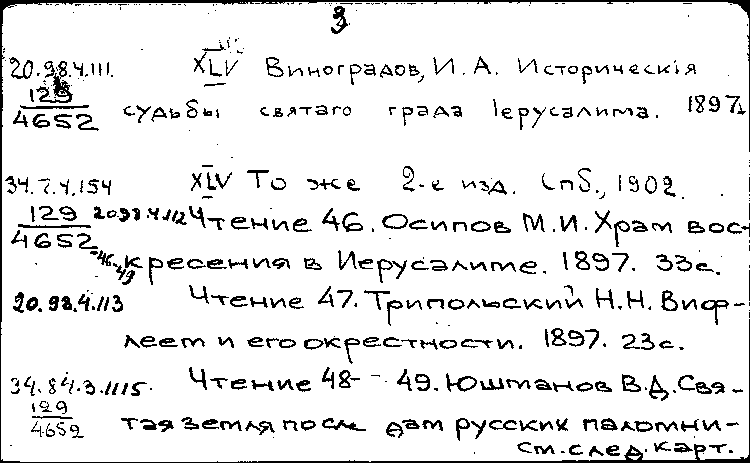 3
20.98.4.111. XLV Виноградов, И. А. Историческія
129
4652 судьбы святаго града Іерусалима. 1897.
34.7.4.154 XLV То же 2-е изд. Спб., 1902.
129
4652 20.98.4.112 Чтение 46. Осипов М.И. Храм вос-
-46-49 кресения в Иерусалиме. 1897. 33с.
20.98.4.113 Чтение 47. Трипольский Н.Н. Виф-
леем и его окрестности. 1897. 23с.
34.84.3.1115. Чтение 48-49. Юшманов В.Д. Свя-
129
4652 тая земля после дат русских паломни-
см. след. карт.